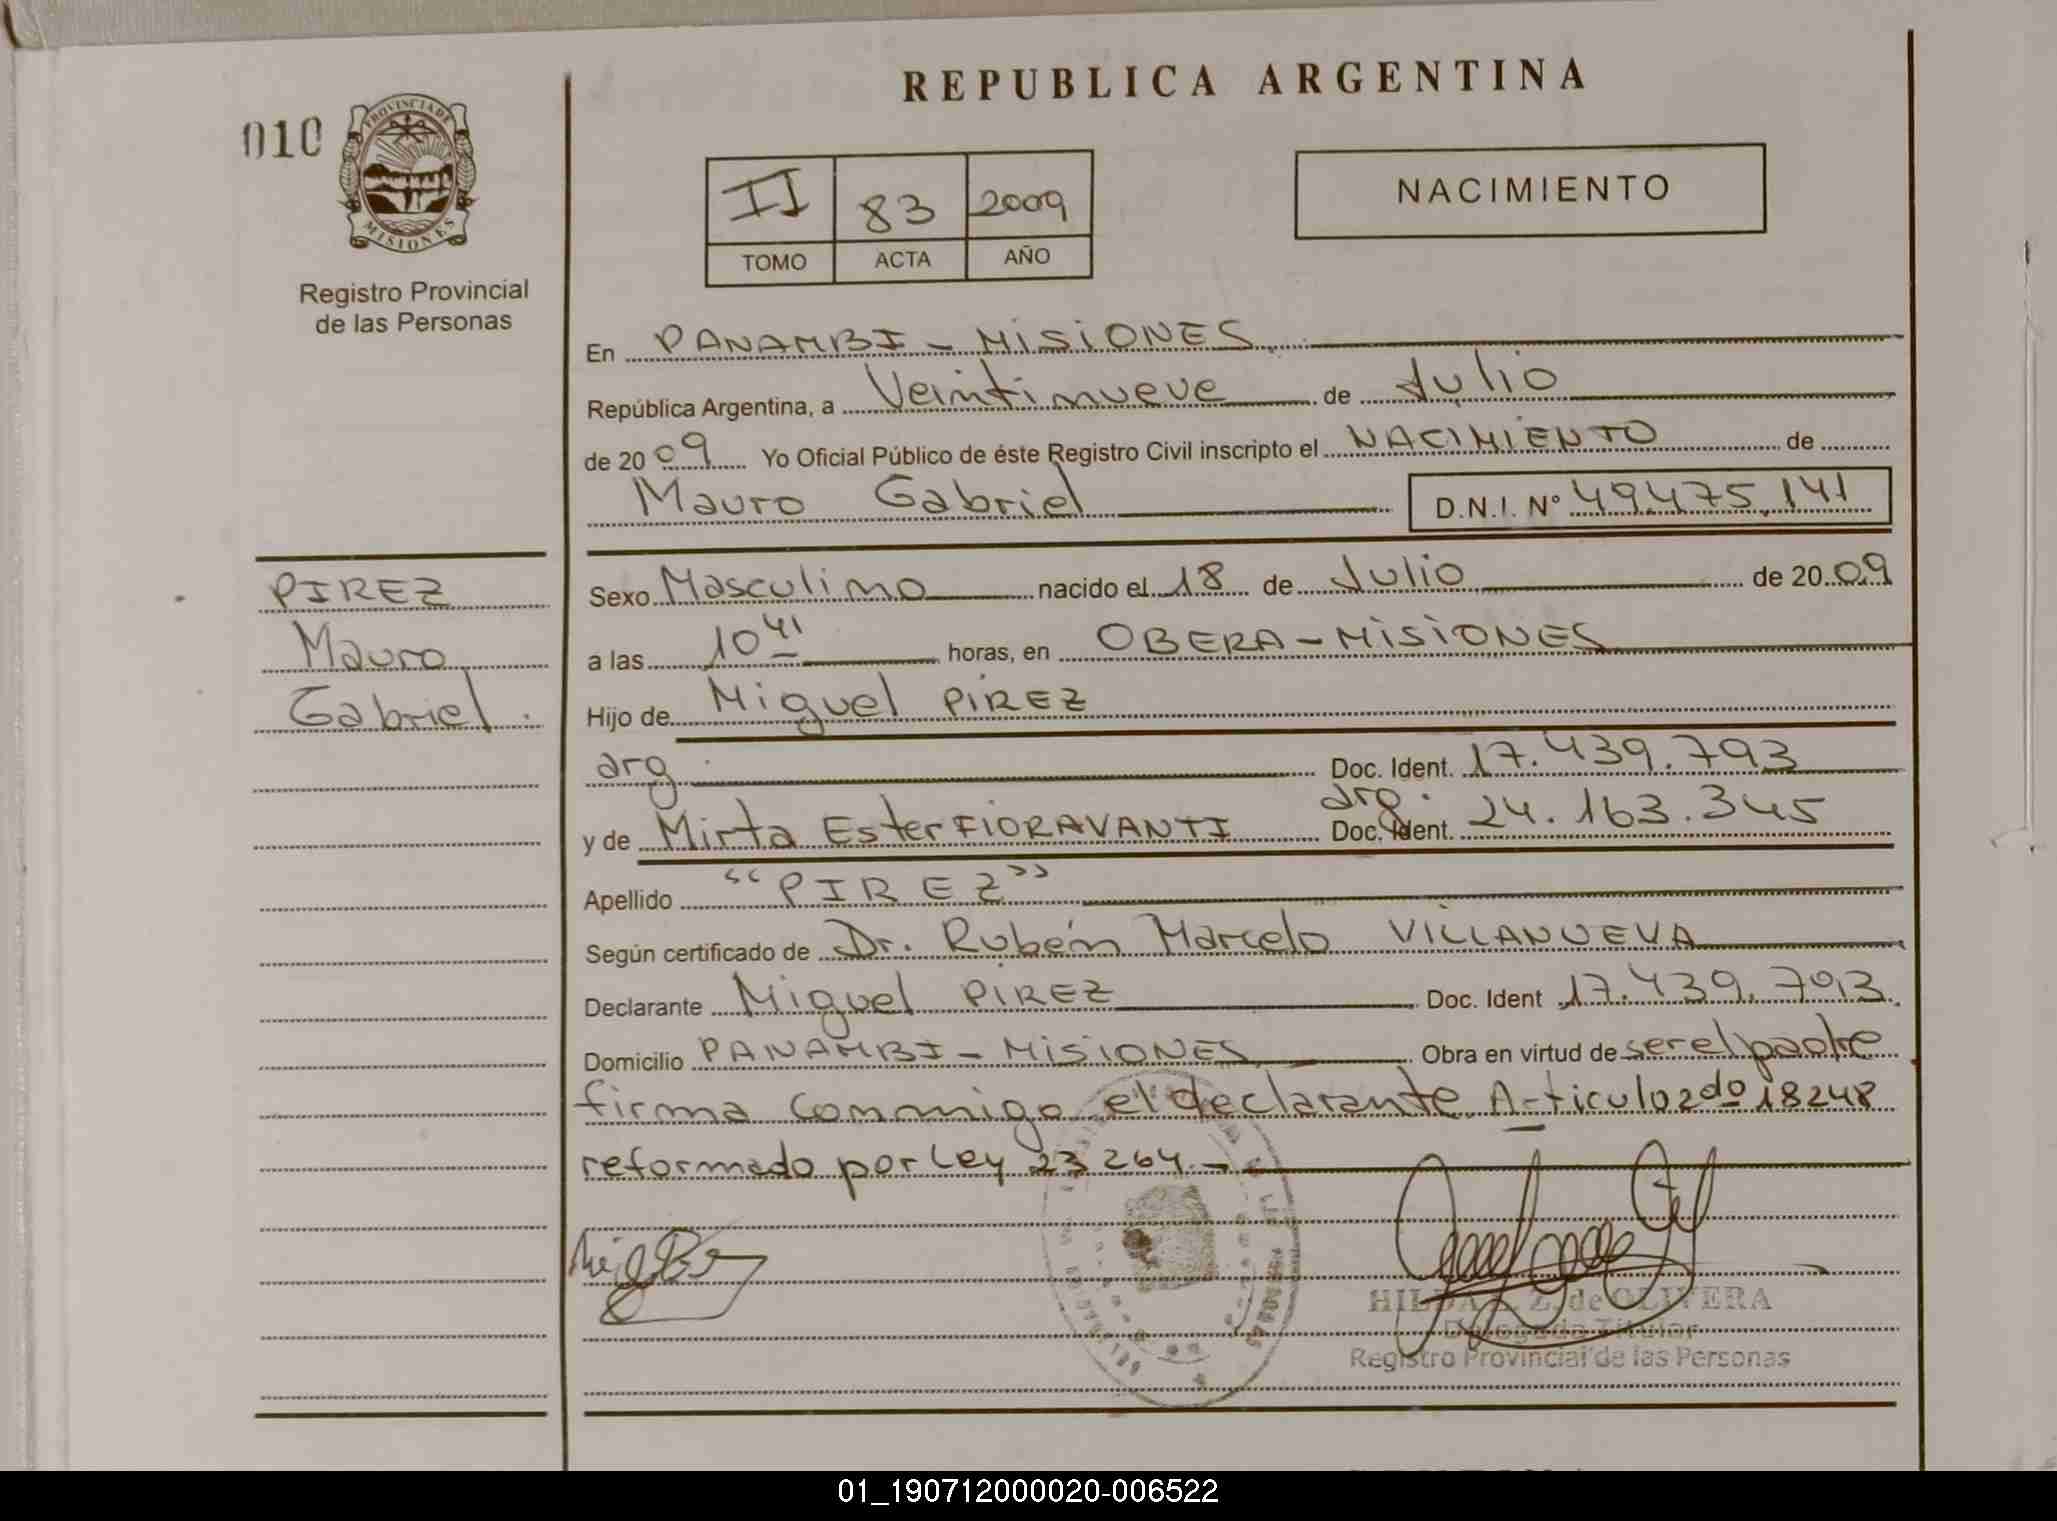 REPUBLICA ARGENTINA
010
PROVINCIA DE
MISIONES
Registro Provincial
de las Personas
II 83 2009
TOMO ACTA AÑO
NACIMIENTO
En PANAMBI - MISIONES
República Argentina, a Veintinueve de Julio
de 2009 Yo Oficial Público de éste Registro Civil inscripto el NACIMIENTO de
Mauro Gabriel D.N.I. Nº 49.475.141
PIREZ
Mauro
Gabriel.
Sexo Masculino nacido el 18 de Julio de 2009
a las 10 41 horas, en OBERA - MISIONES
Hijo de Miguel PIREZ
arg Doc. Ident. 17.439.793
y de Mirta Ester FIORAVANTI arg. Doc. Ident. 24.163.345
Apellido "PIREZ"
Según certificado de Dr. Rubén Marcelo VILLANUEVA
Declarante Miguel PIREZ Doc. Ident 17.439.793
Domicilio PANAMBI - MISIONES Obra en virtud de ser el padre
firma conmigo el declarante. Articulo 2do 18248
reformado por Ley 23264.-
HILDA Z. de OLIVERA
Delegada Titular
Registro Provincial de las Personas
01_190712000020-006522